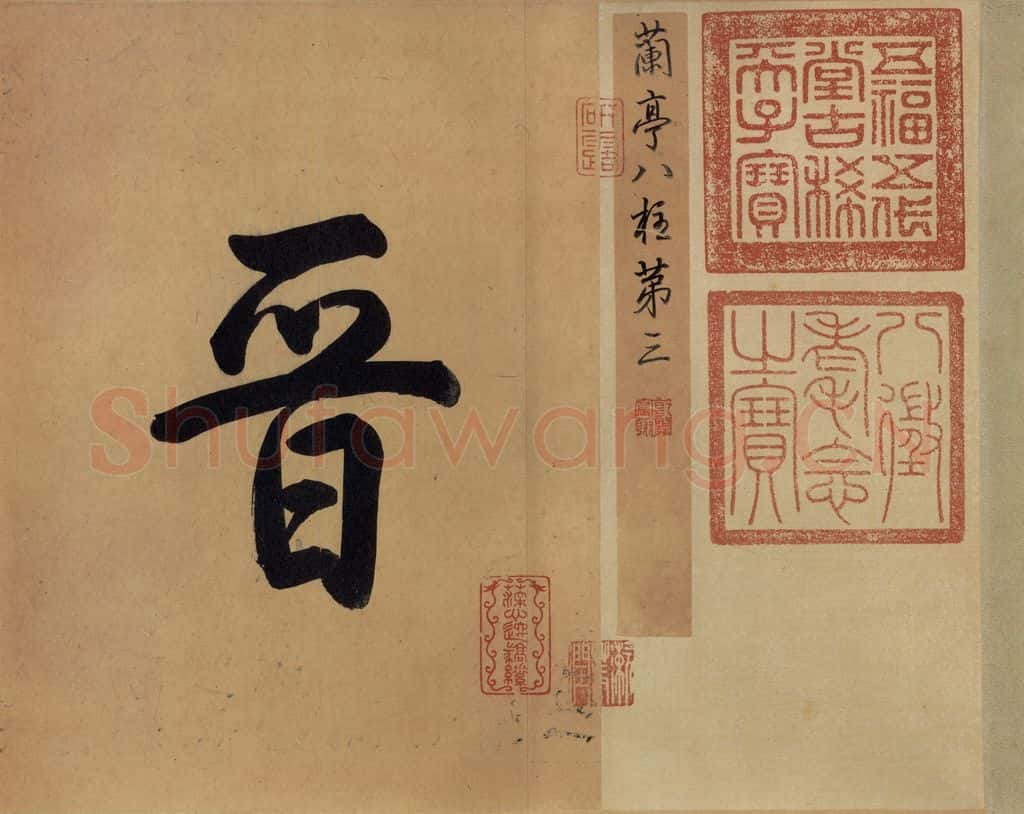 五福五代
堂古稀
天子寶
八徵
耄念
之寶
蘭亭八柱第三
晉
Shufawang.cn